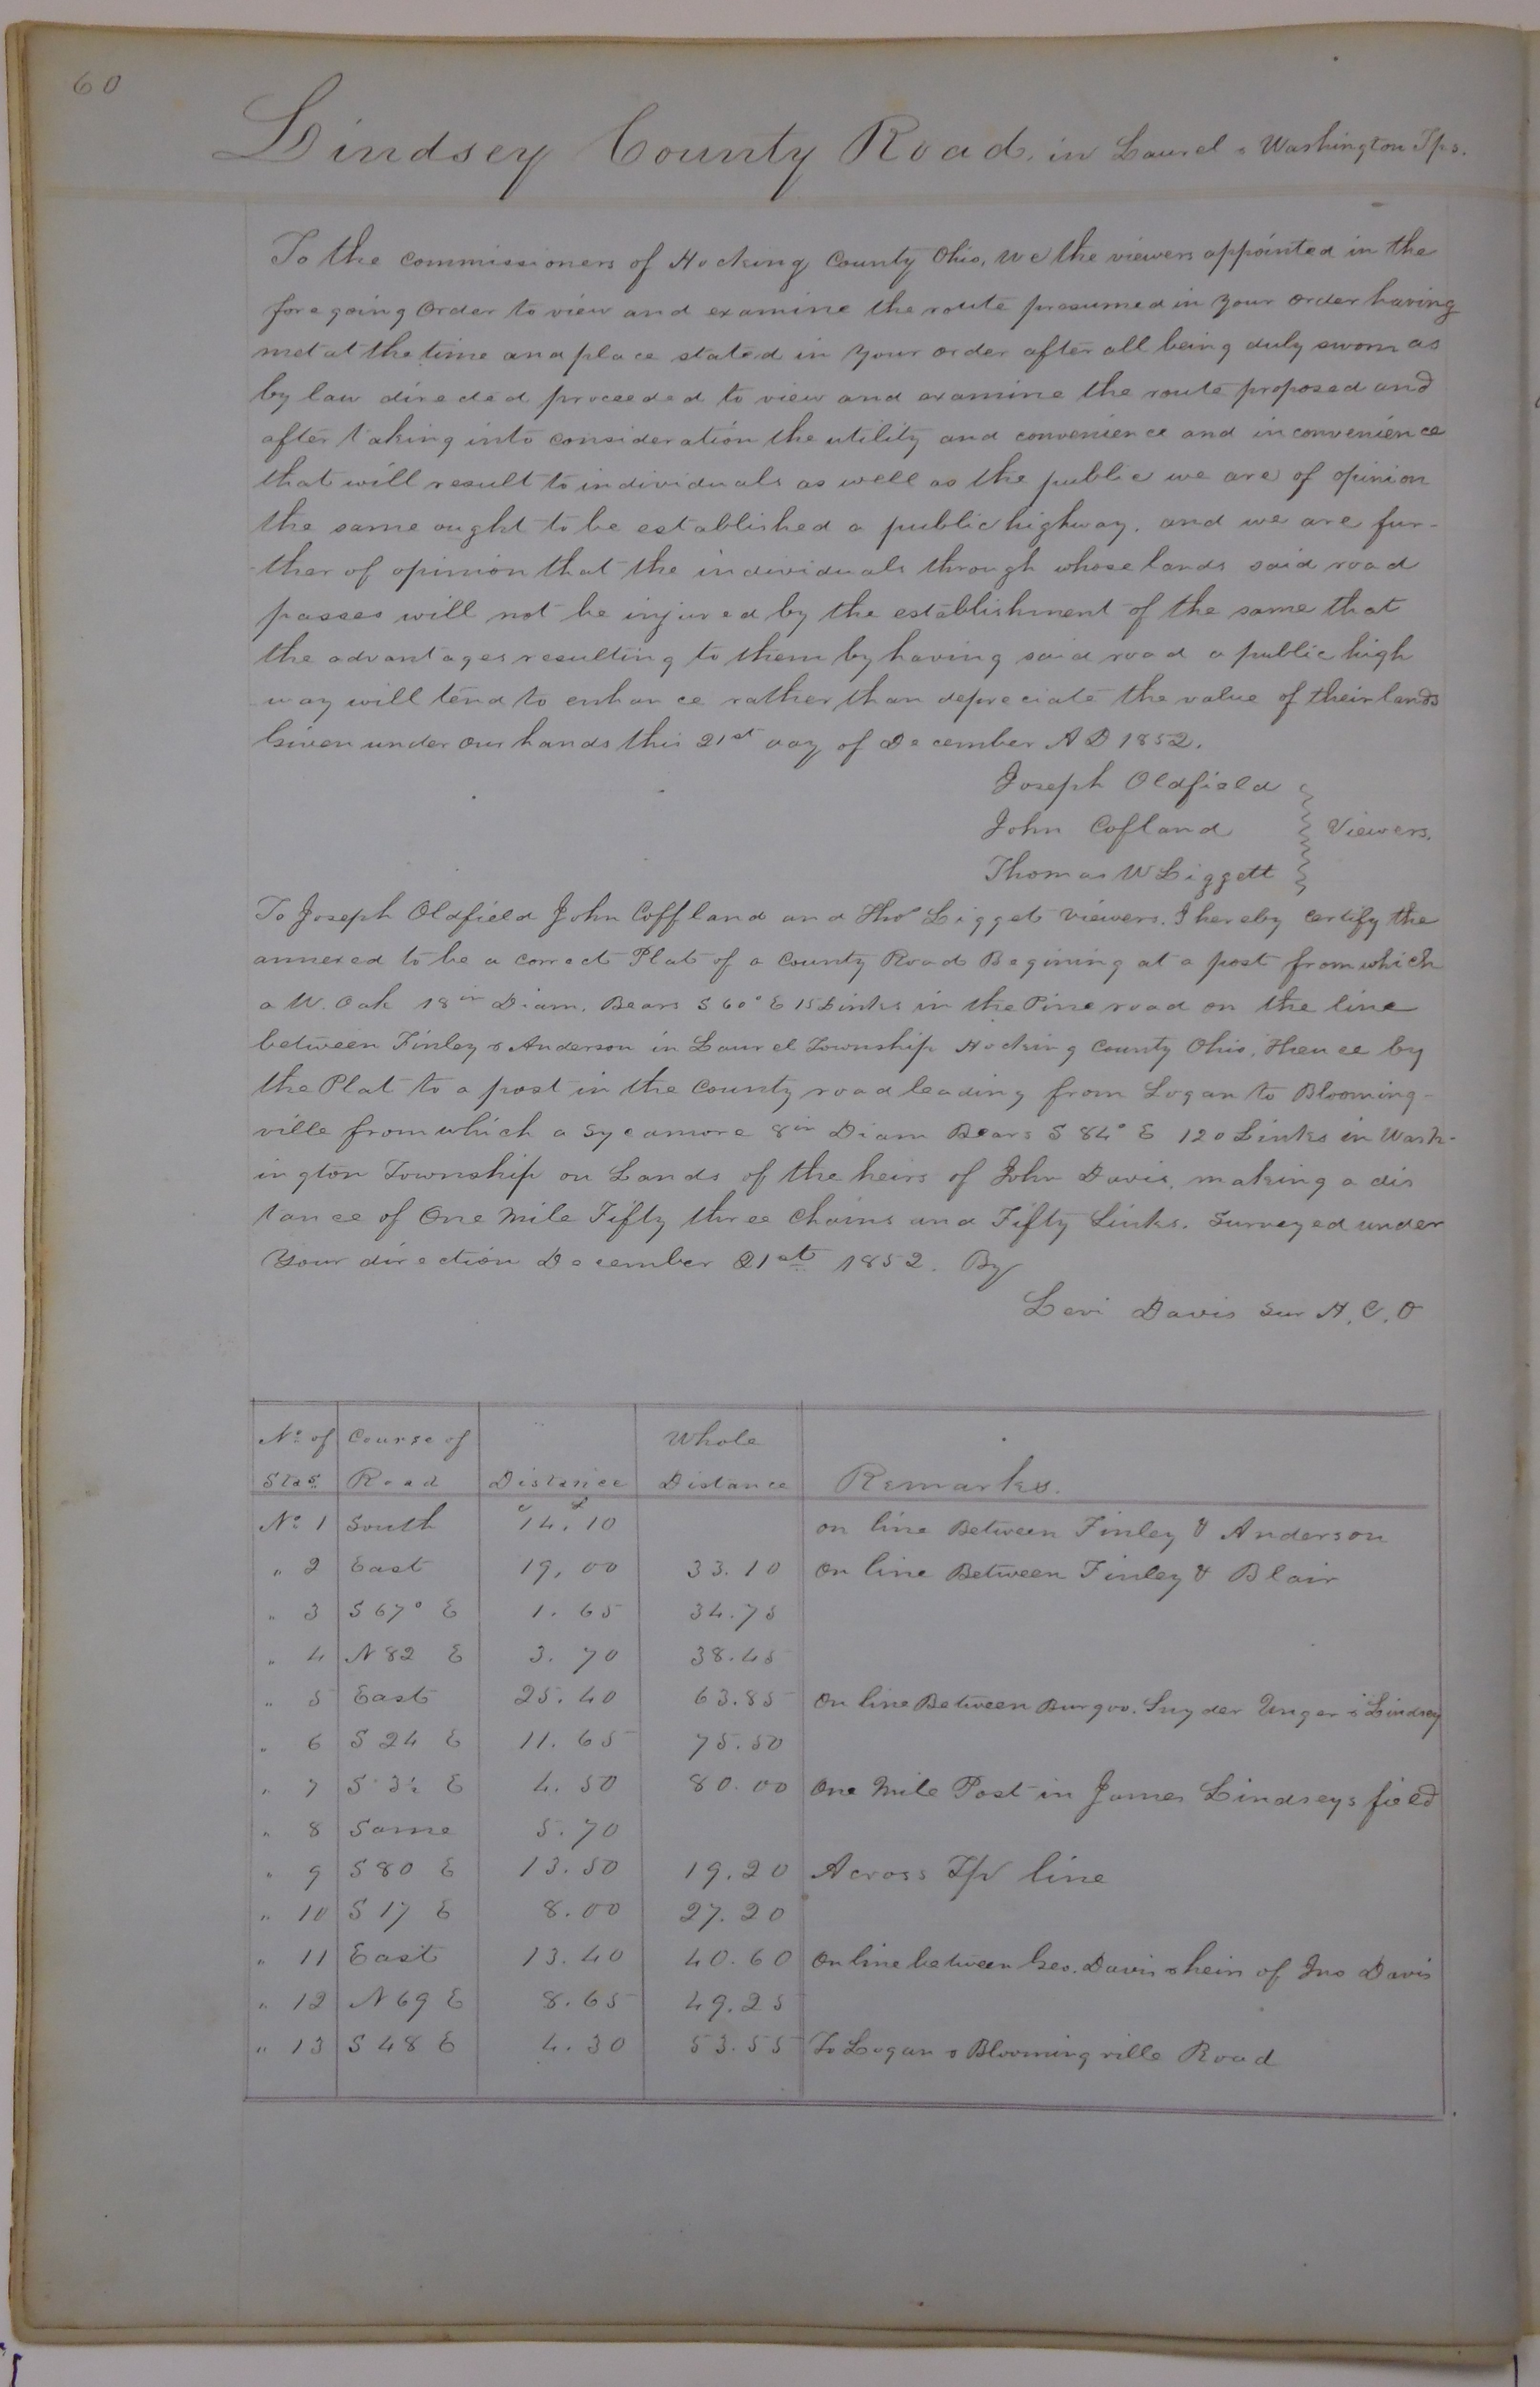 60
Lindsey County Road, in Laurel & Washington Tps.
To the commissioners of Hocking County Ohio, We the viewers appointed in the
foregoing Order to view and examine the route prosumed in your order having
met at the time and place stated in your order after all being duly sworn as
by law directed proceeded to view and examine the route proposed and
after taking into consideration the utility and convenience and inconvenience
that will result to individuals as well as the public we are of opinion
the same ought to be established a public highway, and we are fur-
ther of opinion that the individuals through whose lands said road
passes will not be injured by the establishment of the same that
the advantages resulting to them by having said road a public high
way will tend to enhance rather than depreciate the value of their lands
Given under our hands this 21st day of December A D 1852.
Joseph Oldfield
John Cofland Viewers.
Thomas W Liggett
To Joseph Oldfield John Coffland and Thos Ligget Viewers. I hereby certify the
annexed to be a correct Plat of a County Road Begining at a post from which
a W. Oak 18in Diam. Bears S 60° E 15 Links in the Pine road on the line
between Finley & Anderson in Laurel Township Hocking County Ohio, Thence by
the Plat to a post in the County road leading from Logan to Blooming-
ville from which a Sycamore 8in Diam Bears S 84° E 120 Links in Wash-
ington Township on Lands of the heirs of John Davis, making a dis
tance of One Mile Fifty three Chains and Fifty Links. Surveyed under
Your direction December 21st 1852. By
Levi Davis Sur H. C. O
No of Course of Whole
Stas. Road Distance Distance Remarks.
C L
No 1 South 14.10 on line Between Finley & Anderson
" 2 East 19,00 33.10 On line Between Finley & Blair
" 3 S 67° E 1.65 34.75
" 4 N 82 E 3.70 38.45
" 5 East 25.40 63.85 On line Between Burgoo. Snyder Unger & Lindsey
" 6 S 24 E 11.65 75.50
" 7 S 3½ E 4.50 80.00 One Mile Post in James Lindseys field
" 8 Same 5.70
" 9 S 80 E 13.50 19.20 Across Tp line
" 10 S 17 E 8.00 27.20
" 11 East 13.40 40.60 On line between Geo. Davis & heirs of Jno Davis
" 12 N 69 E 8.65 49.25
" 13 S 48 E 4.30 53.55 To Logan & Bloomingville Road